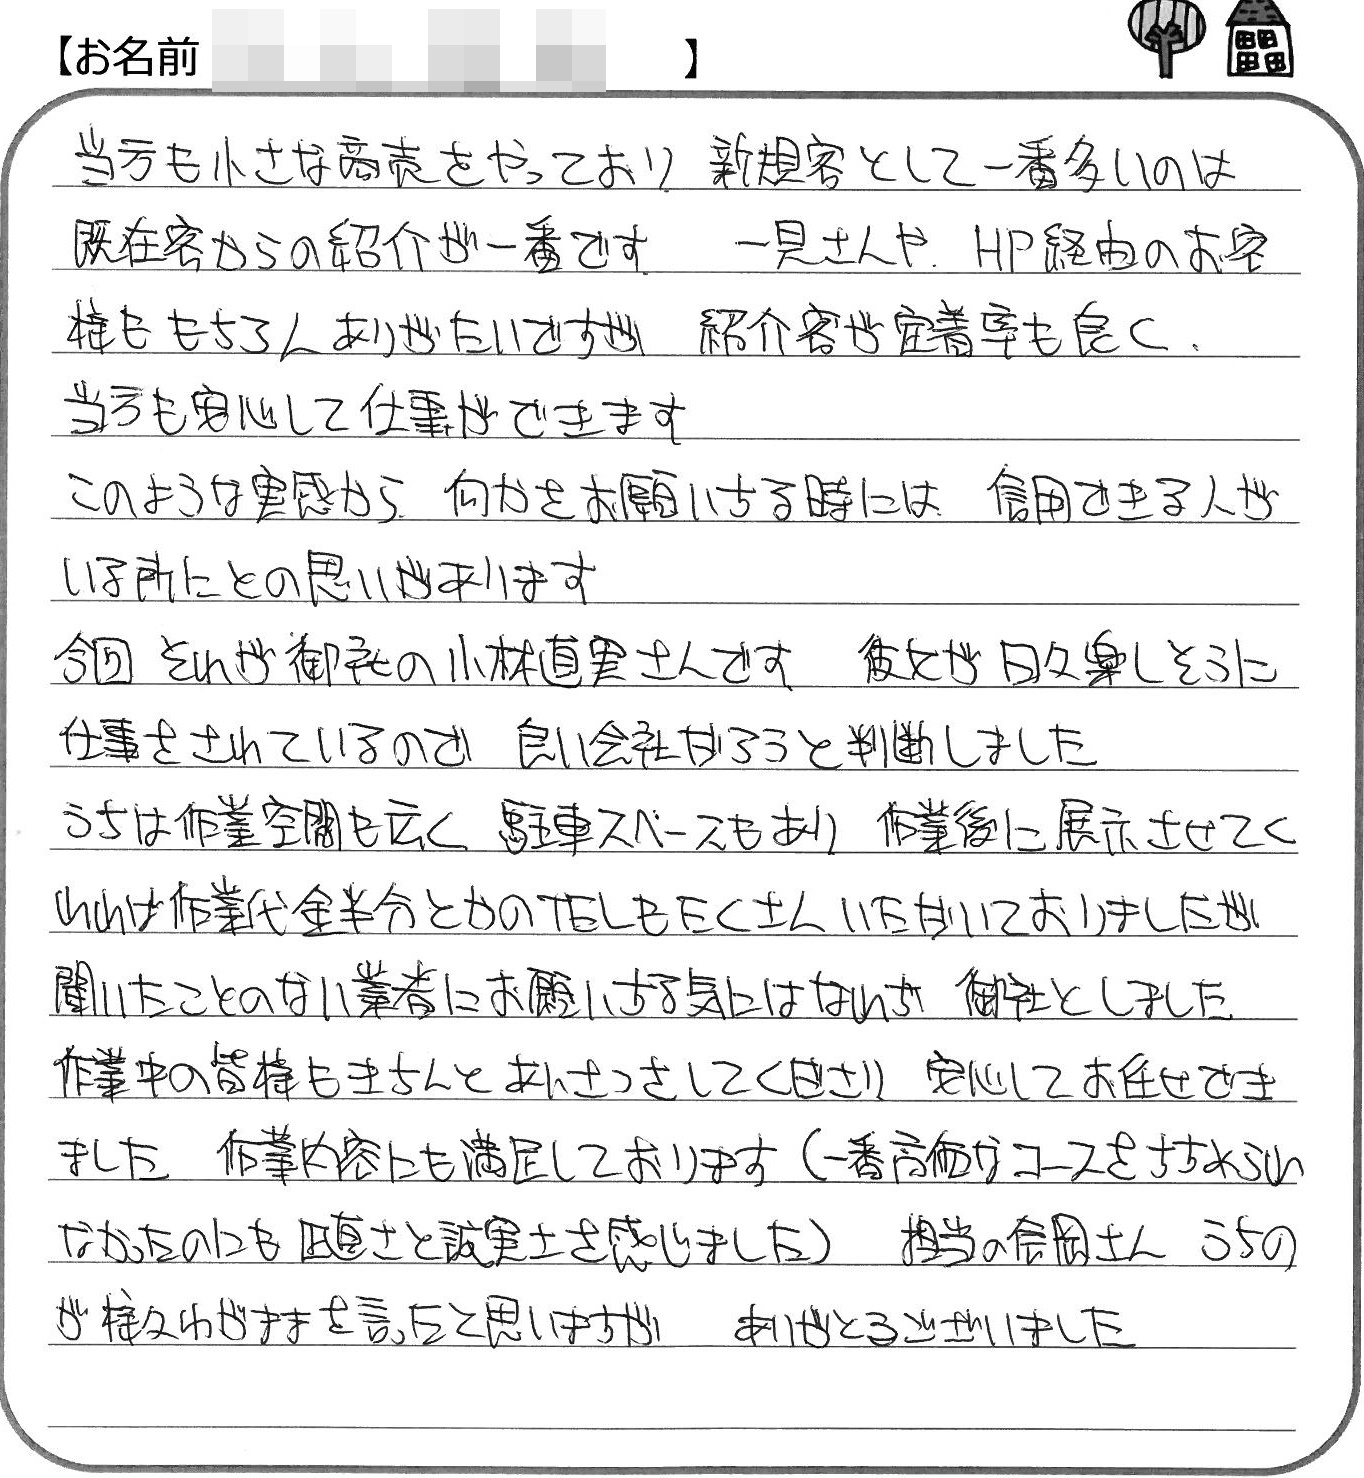 【お名前 】
当方も小さな商売をやっており 新規客として一番多いのは
既在客からの紹介が一番です 一見さんや、HP経由のお客
様も もちろん ありがたいですが 紹介客が定着率も良く、
当方も安心して仕事ができます
このような実感から、何かをお願いする時には 信用できる人が
いる所にとの思いがあります
今回 それが御社の小林直実さんです 彼女が日々楽しそうに
仕事をされているので 良い会社だろうと判断しました
うちは作業空間も広く 駐車スペースもあり 作業後に展示させてく
れれば作業代金半分とかのTELもたくさんいただいておりましたが
聞いたことのない業者にお願いする気にはなれず 御社としました
作業中の皆様もきちんとあいさつをしてくださり 安心してお任せでき
ました 作業内容にも満足しております(一番高価なコースをすすめられ
なかったのにも 正直さと誠実さを感じました) 担当の信岡さん うちの
が様々わがままを言ったと思いますが ありがとうございました